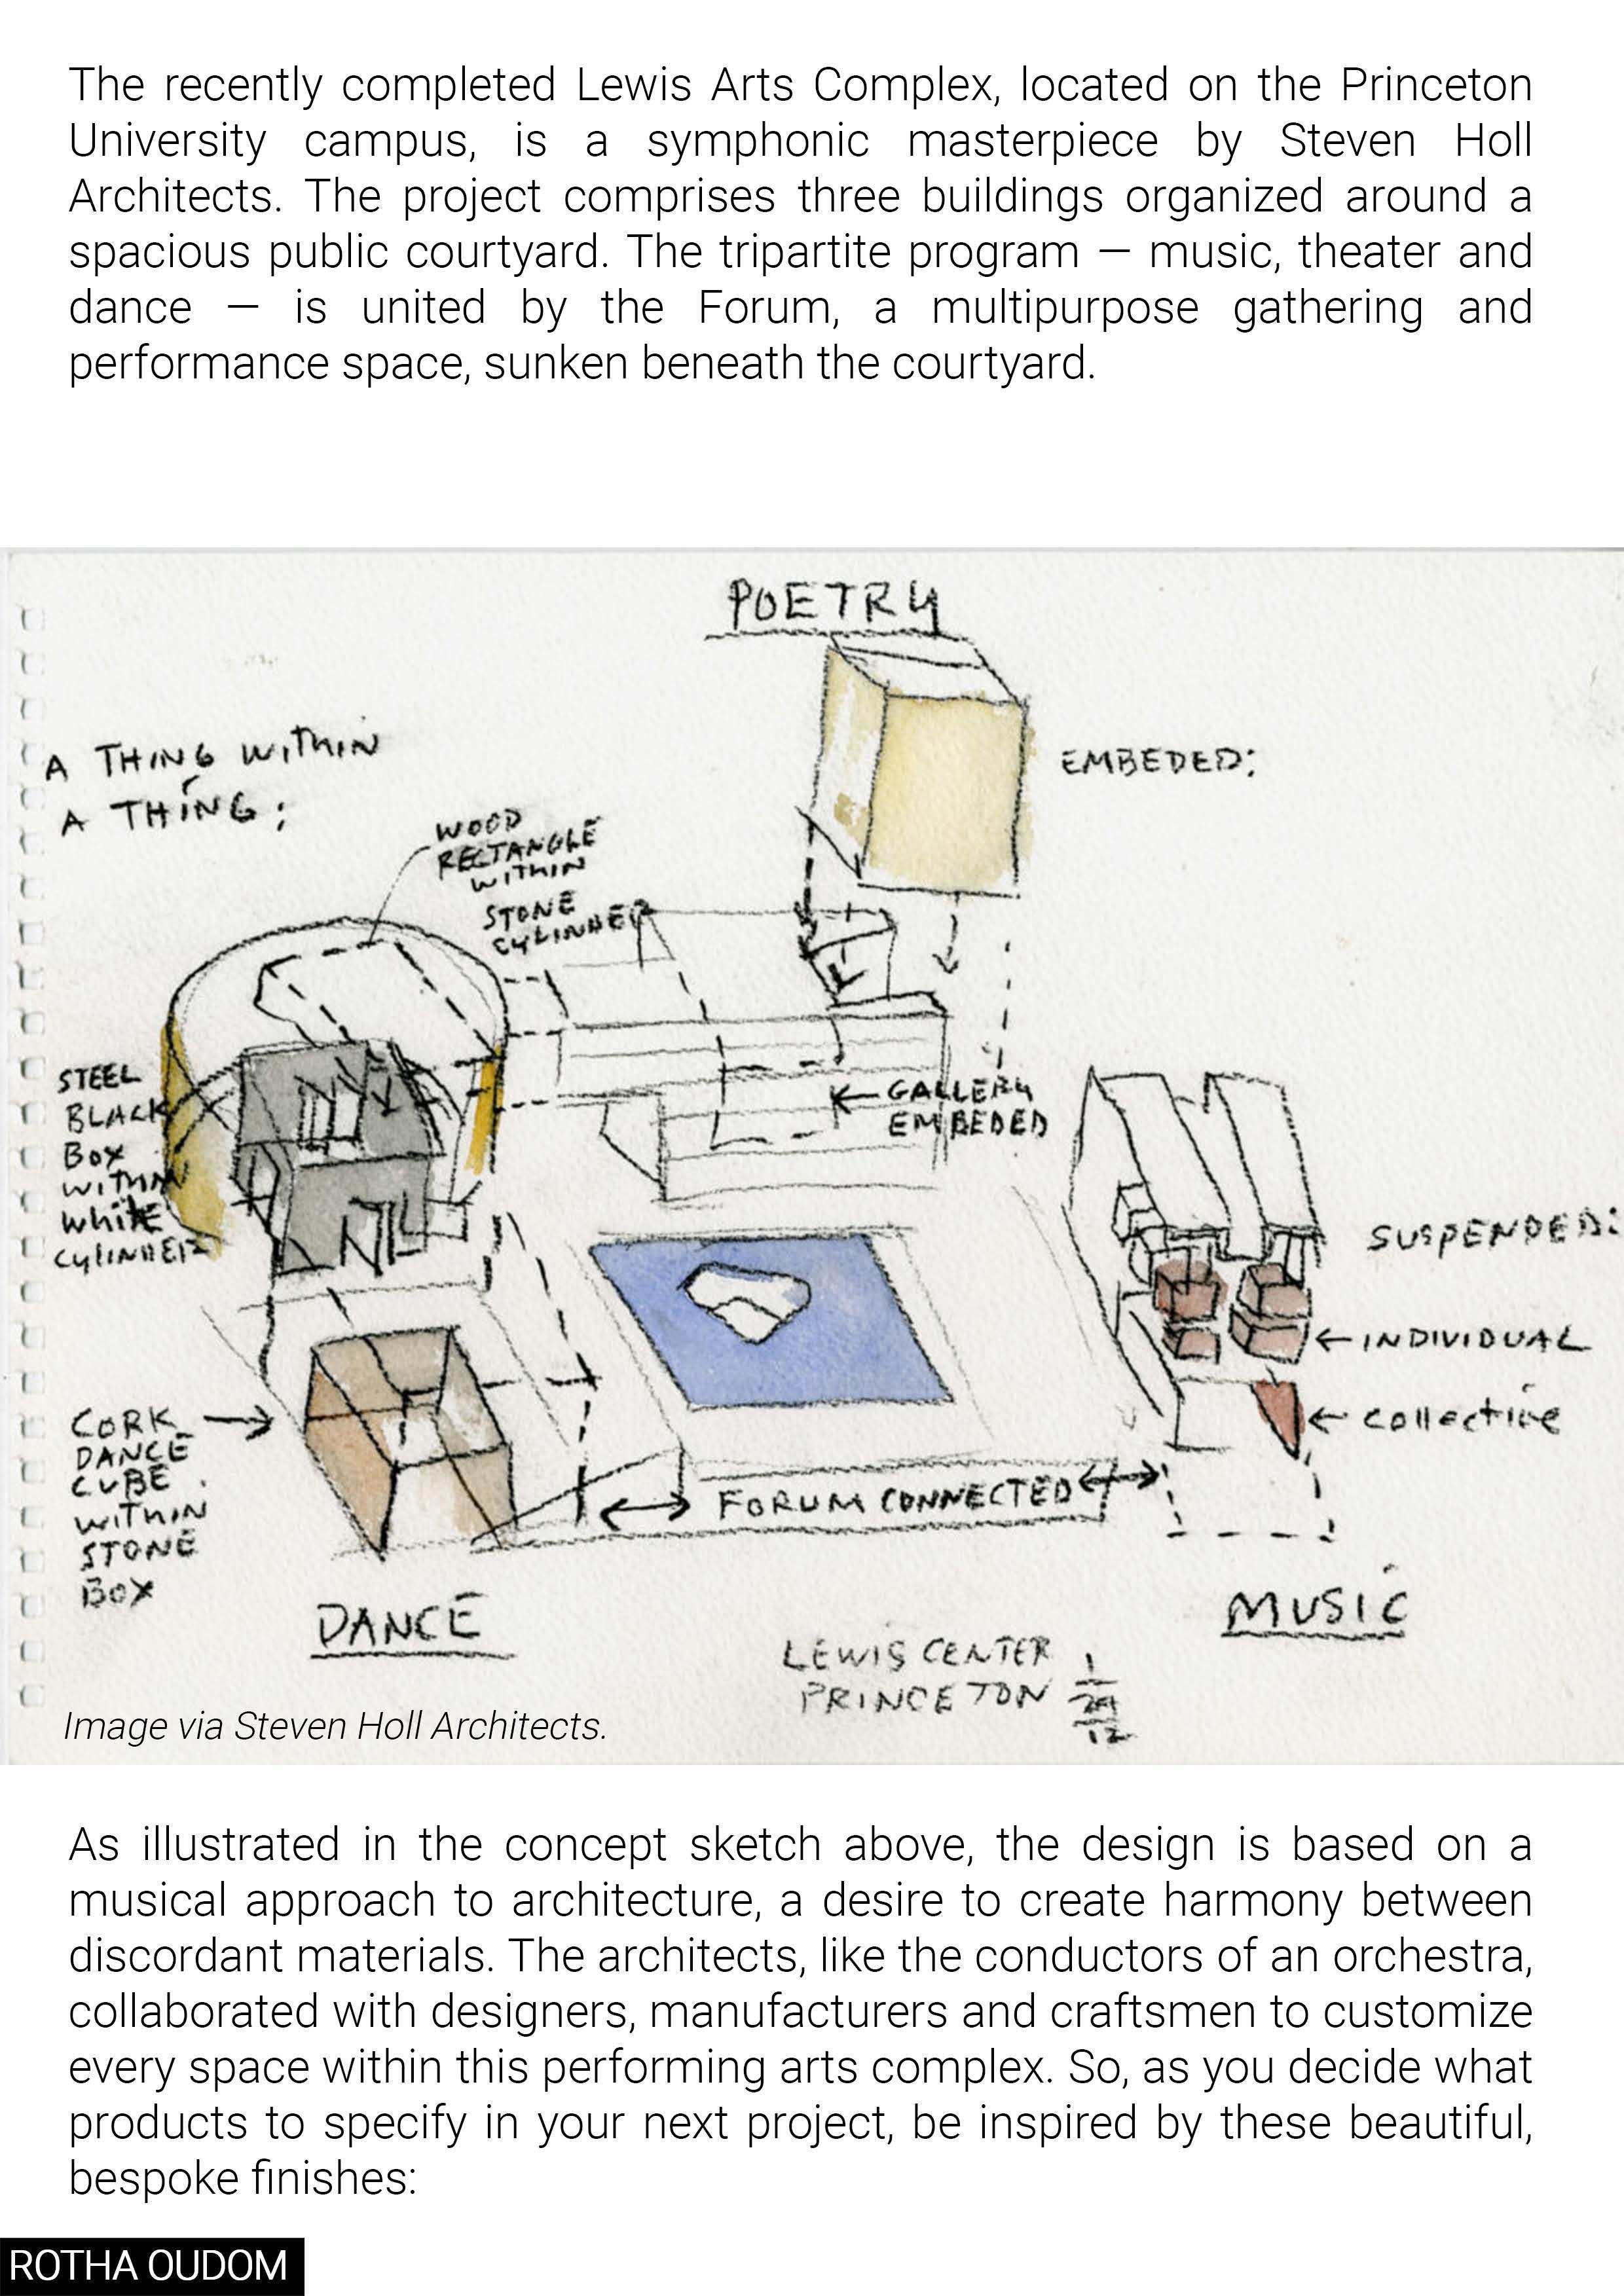 The recently completed Lewis Arts Complex, located on the Princeton
University campus, is a symphonic masterpiece by Steven Holl
Architects. The project comprises three buildings organized around a
spacious public courtyard. The tripartite program — music, theater and
dance — is united by the Forum, a multipurpose gathering and
performance space, sunken beneath the courtyard.
POETRY
A THING WITHIN
A THING;
EMBEDED:
WOOD
RECTANGLE
WITHIN
STONE
CYLINDER
STEEL
BLACK
BOX
WITHIN
WHITE
CYLINDER
GALLERY
EMBEDED
SUSPENDED:
INDIVIDUAL
COLLECTIVE
CORK
DANCE
CUBE
WITHIN
STONE
BOX
FORUM CONNECTED
DANCE
MUSIC
LEWIS CENTER
PRINCETON
1
29
12
Image via Steven Holl Architects.
As illustrated in the concept sketch above, the design is based on a
musical approach to architecture, a desire to create harmony between
discordant materials. The architects, like the conductors of an orchestra,
collaborated with designers, manufacturers and craftsmen to customize
every space within this performing arts complex. So, as you decide what
products to specify in your next project, be inspired by these beautiful,
bespoke finishes:
ROTHA OUDOM